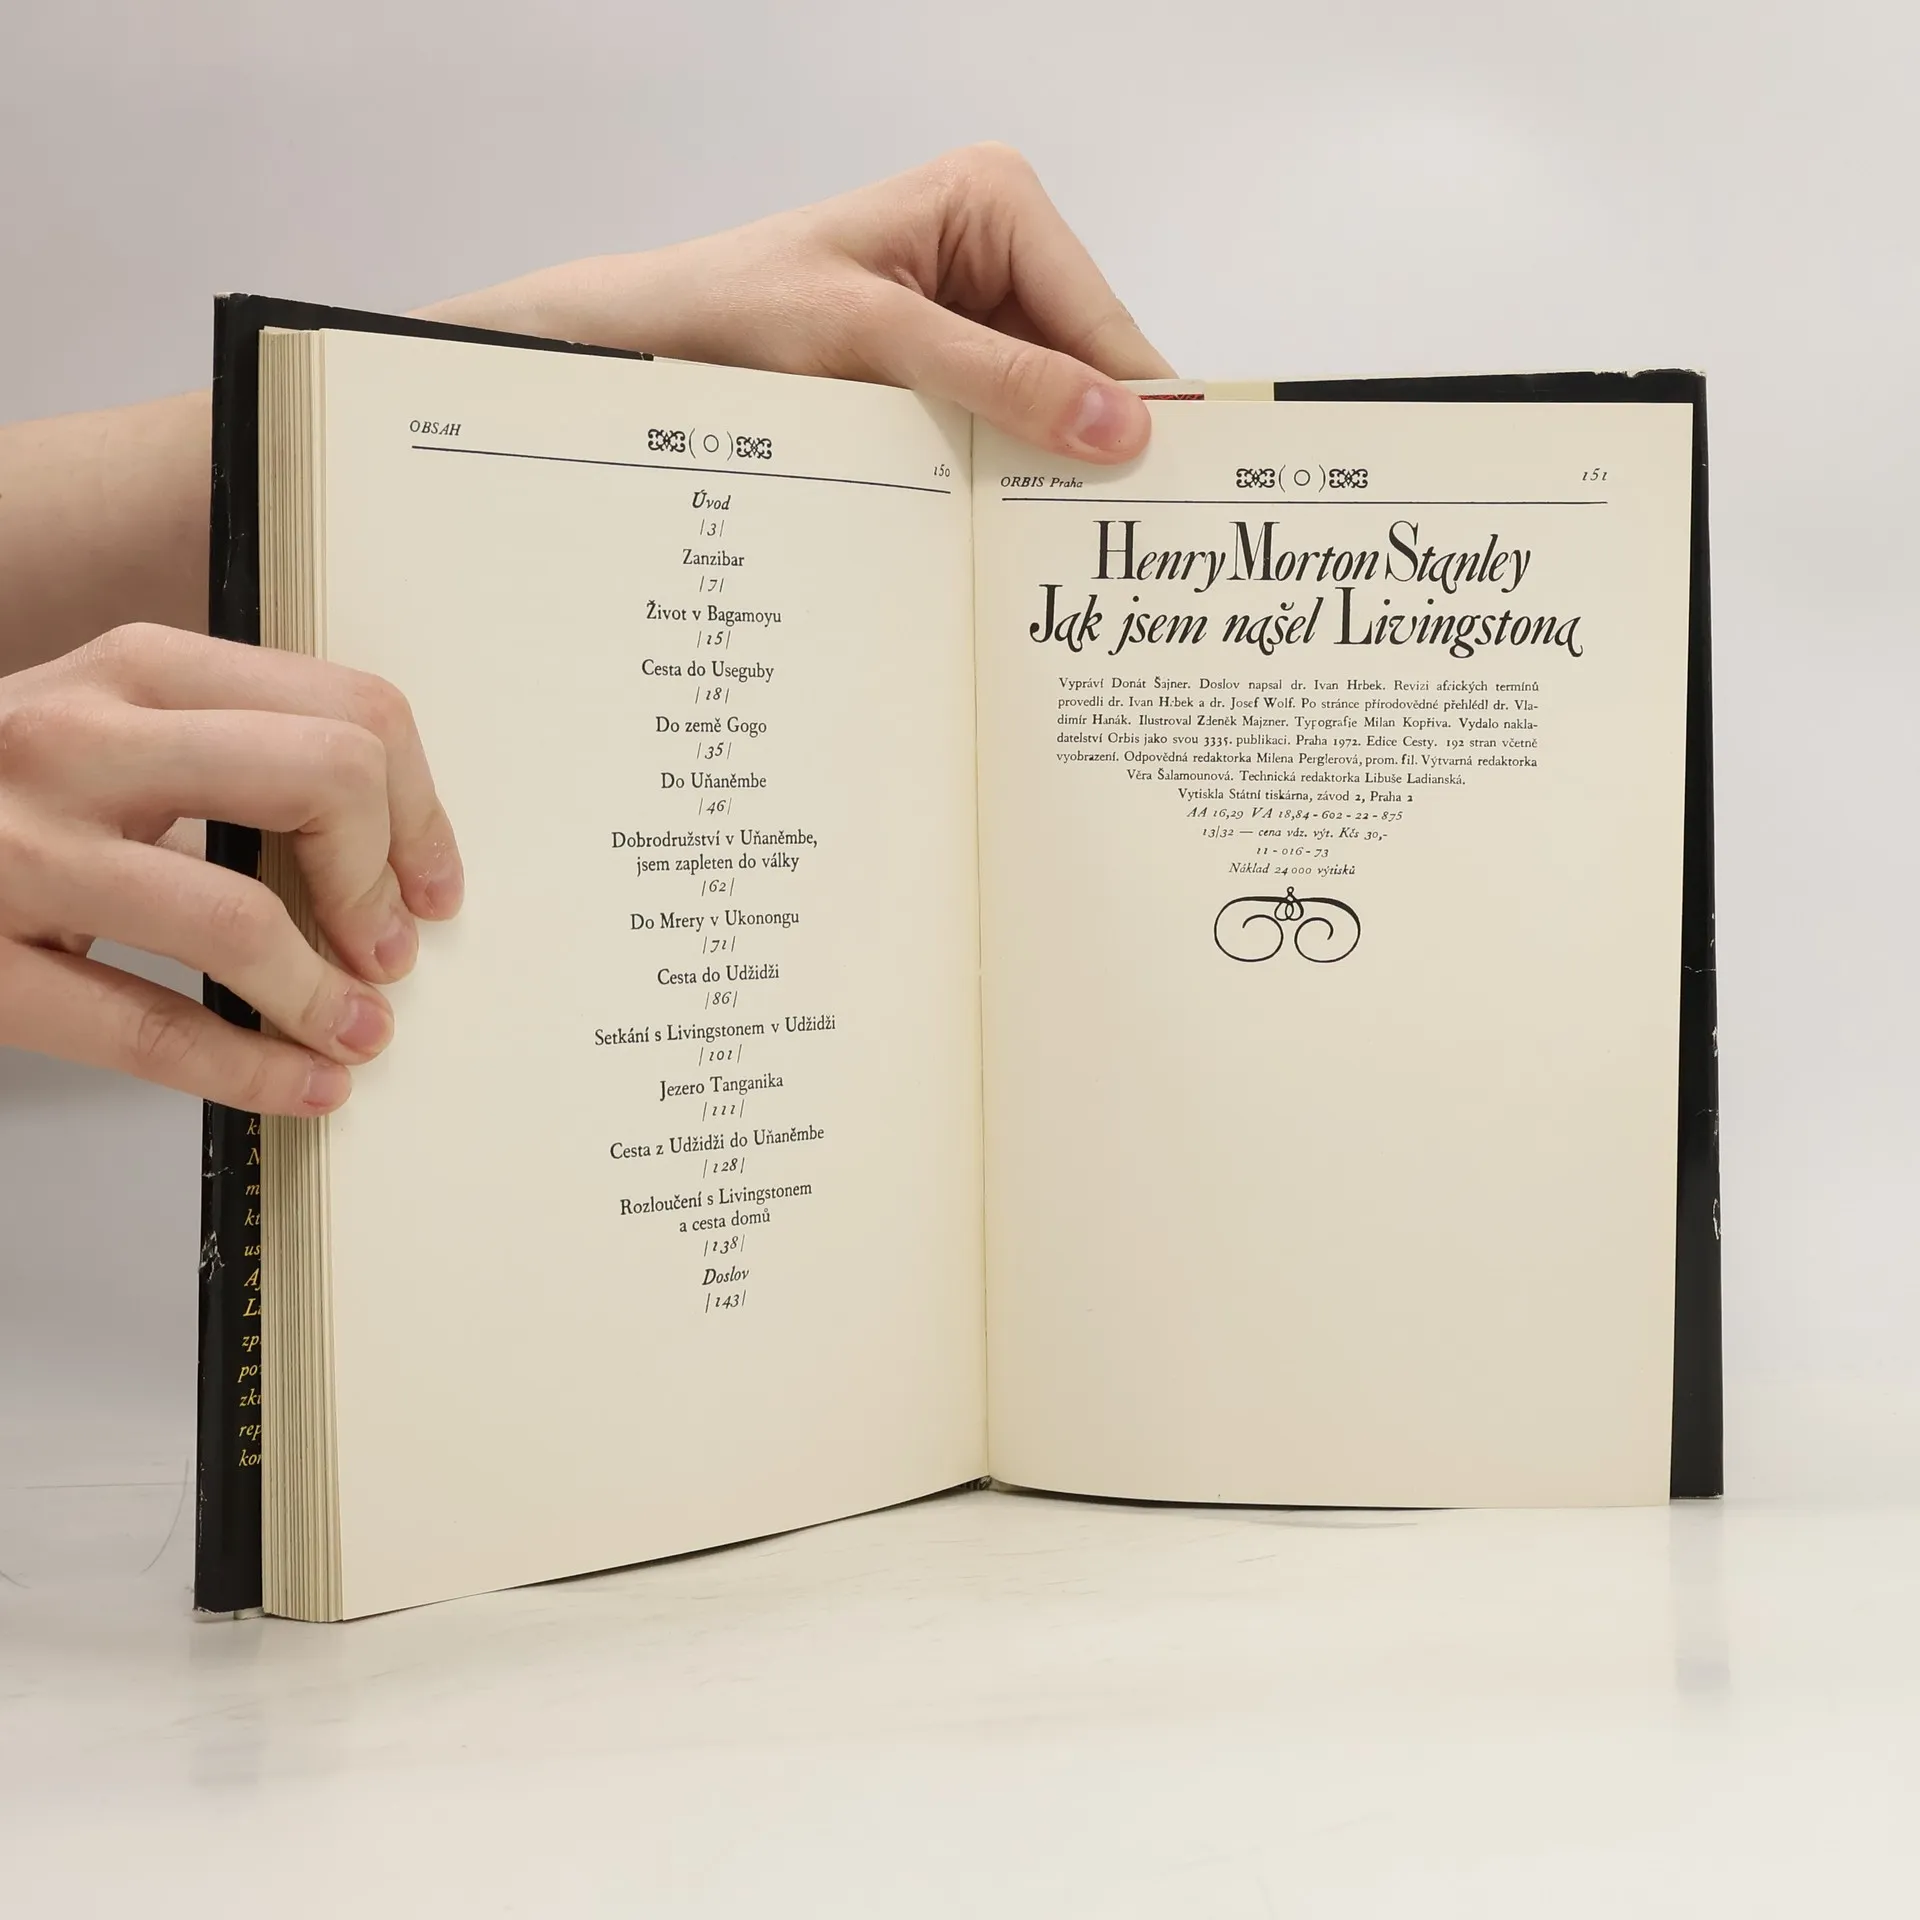 OBSAH
150
Úvod
|3|
Zanzibar
|7|
Život v Bagamoyu
|15|
Cesta do Useguby
|18|
Do země Gogo
|35|
Do Uňaněmbe
|46|
Dobrodružství v Uňaněmbe,
jsem zapleten do války
|62|
Do Mrery v Ukonongu
|71|
Cesta do Udžidži
|86|
Setkání s Livingstonem v Udžidži
|101|
Jezero Tanganika
|111|
Cesta z Udžidži do Uňaněmbe
|128|
Rozloučení s Livingstonem
a cesta domů
|138|
Doslov
|143|
ORBIS Praha
151
Henry Morton Stanley
Jak jsem našel Livingstona
Vypráví Donát Šajner. Doslov napsal dr. Ivan Hrbek. Revizi afrických termínů
provedli dr. Ivan Hrbek a dr. Josef Wolf. Po stránce přírodovědné přehlédl dr. Vla-
dimír Hanák. Ilustroval Zdeněk Majzner. Typografie Milan Kopřiva. Vydalo nakla-
datelství Orbis jako svou 3335. publikaci. Praha 1972. Edice Cesty. 192 stran včetně
vyobrazení. Odpovědná redaktorka Milena Perglerová, prom. fil. Výtvarná redaktorka
Věra Šalamounová. Technická redaktorka Libuše Ladianská.
Vytiskla Státní tiskárna, závod 2, Praha 2
AA 16,29 VA 18,84 - 602 - 22 - 875
13/32 — cena váz. výt. Kčs 30,-
11 - 016 - 73
Náklad 24 000 výtisků